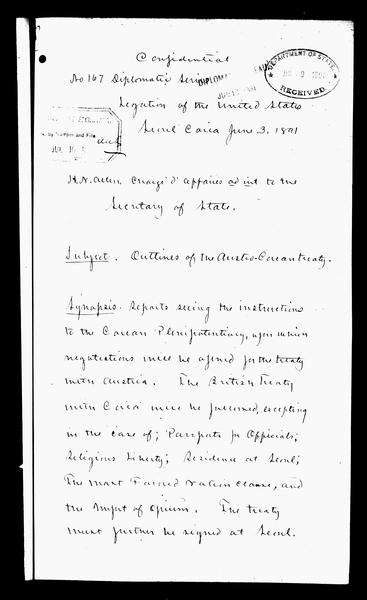 Confidential
No 167 Diplomatic Series
DEPARTMENT OF STATE
RECEIVED
Legation of the United States
Seoul Corea June 3, 1891
H. N. Allen, Charge d' affaires ad int to the
Secretary of State.
Subject. Outlines of the Austro-Corean treaty.
Synopsis. Reports seeing the instructions
to the Corean Plenipotentiary, upon which
negotiations will be opened for the treaty
with Austria. The British Treaty
with Corea will be followed, excepting
in the case of; Passports for Officials;
Religious Liberty; Residence at Seoul;
The most Favored nation clause, and
the import of opium. The treaty
must further be signed at Seoul.